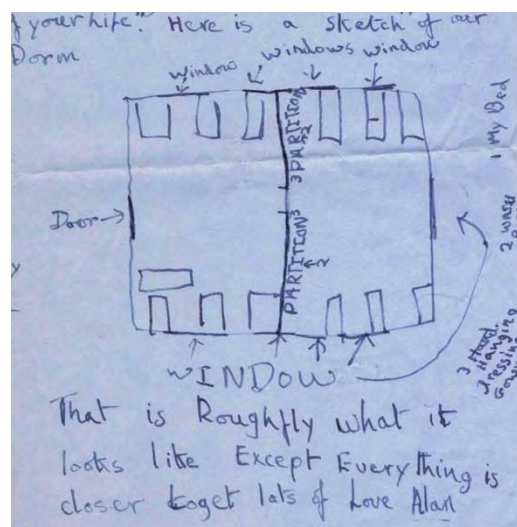 f your Life." Here is a sketch of our
Dorm
window windows window
1 My Bed
3 PARTITION
2
Door
PARTITION 3
2
2 wash
3 Hand
Hanging
Dressing
Gown
WINDOW
That is Roughfly what it
looks like Except Everything is
closer toget lots of Love Alan